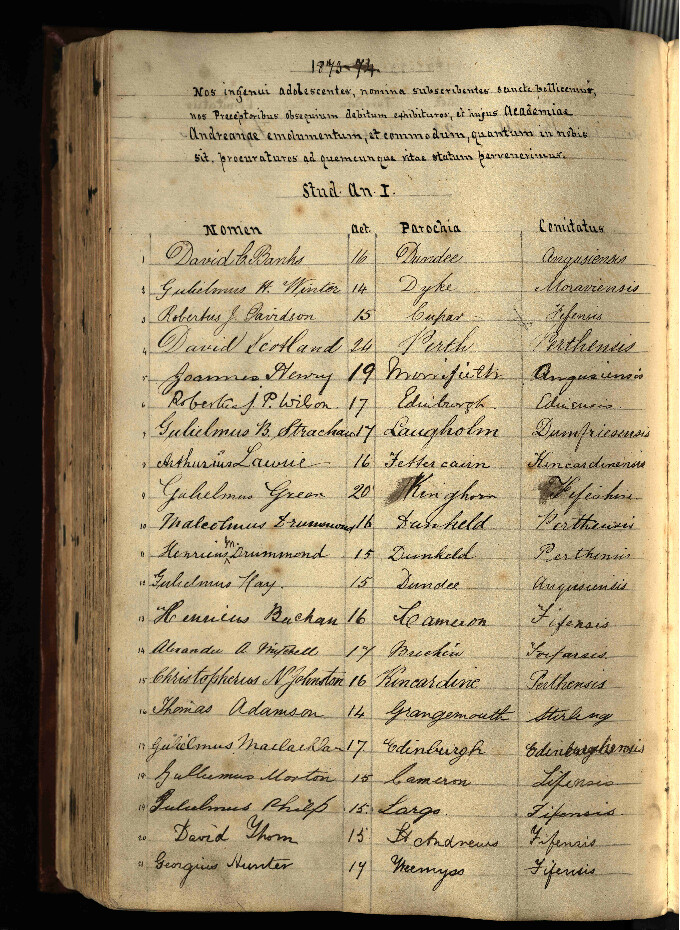 1873-74.
Nos ingenui adolescentes, nomina subscribentes sancte pollicemur,
nos Preceptoribus obsequium debitum exhibituros, et hujus Academiae
Andreanae emolumentum, et commodum, quantum in nobis
sit, procuraturos ad quemcunque vitae statum pervenerimus.
Stud. An. I.
Nomen Aet. Parochia Comitatus
1 David C. Banks 16 Dundee Angusiensis
2 Gulielmus H. Winter 14 Dyke Moraviensis
3 Robertus J. Davidson 15 Cupar Fifensis
4 David Scotland 24 Perth Perthensis
5 Joannes Henry 19 Monifieth Angusiensis
6 Robertus J. P. Wilson 17 Edinburgh Edinensis
7 Gulielmus B. Strachan 17 Langholm Dumfriesensis
8 Arthurius Lawrie 16 Fettercairn Kincardinensis
9 Gulielmus Green 20 Kinghorn Fifeshire
10 Malcolmus Drummond 16 Dunkeld Perthensis
11 Henricus Wm. Drummond 15 Dunkeld Perthensis
12 Gulielmus Kay. 15 Dundee Angusiensis
13 Henricus Buchan 16 Cameron Fifensis
14 Alexander A 17 Brechin
15 Christopherus N Johnston 16 Kincardine Perthensis
16 Thomas Adamson 14 Grangemouth Stirling
17 Gulielmus Maclachlan 17 Edinburgh Edinburghensis
18 Gulielmus Morton 15 Cameron Fifensis
19 Gulielmus Philp 15 Largo. Fifensis
20 David Thom 15 St Andrews Fifensis
21 Georgius Hunter 17 Wemyss Fifensis